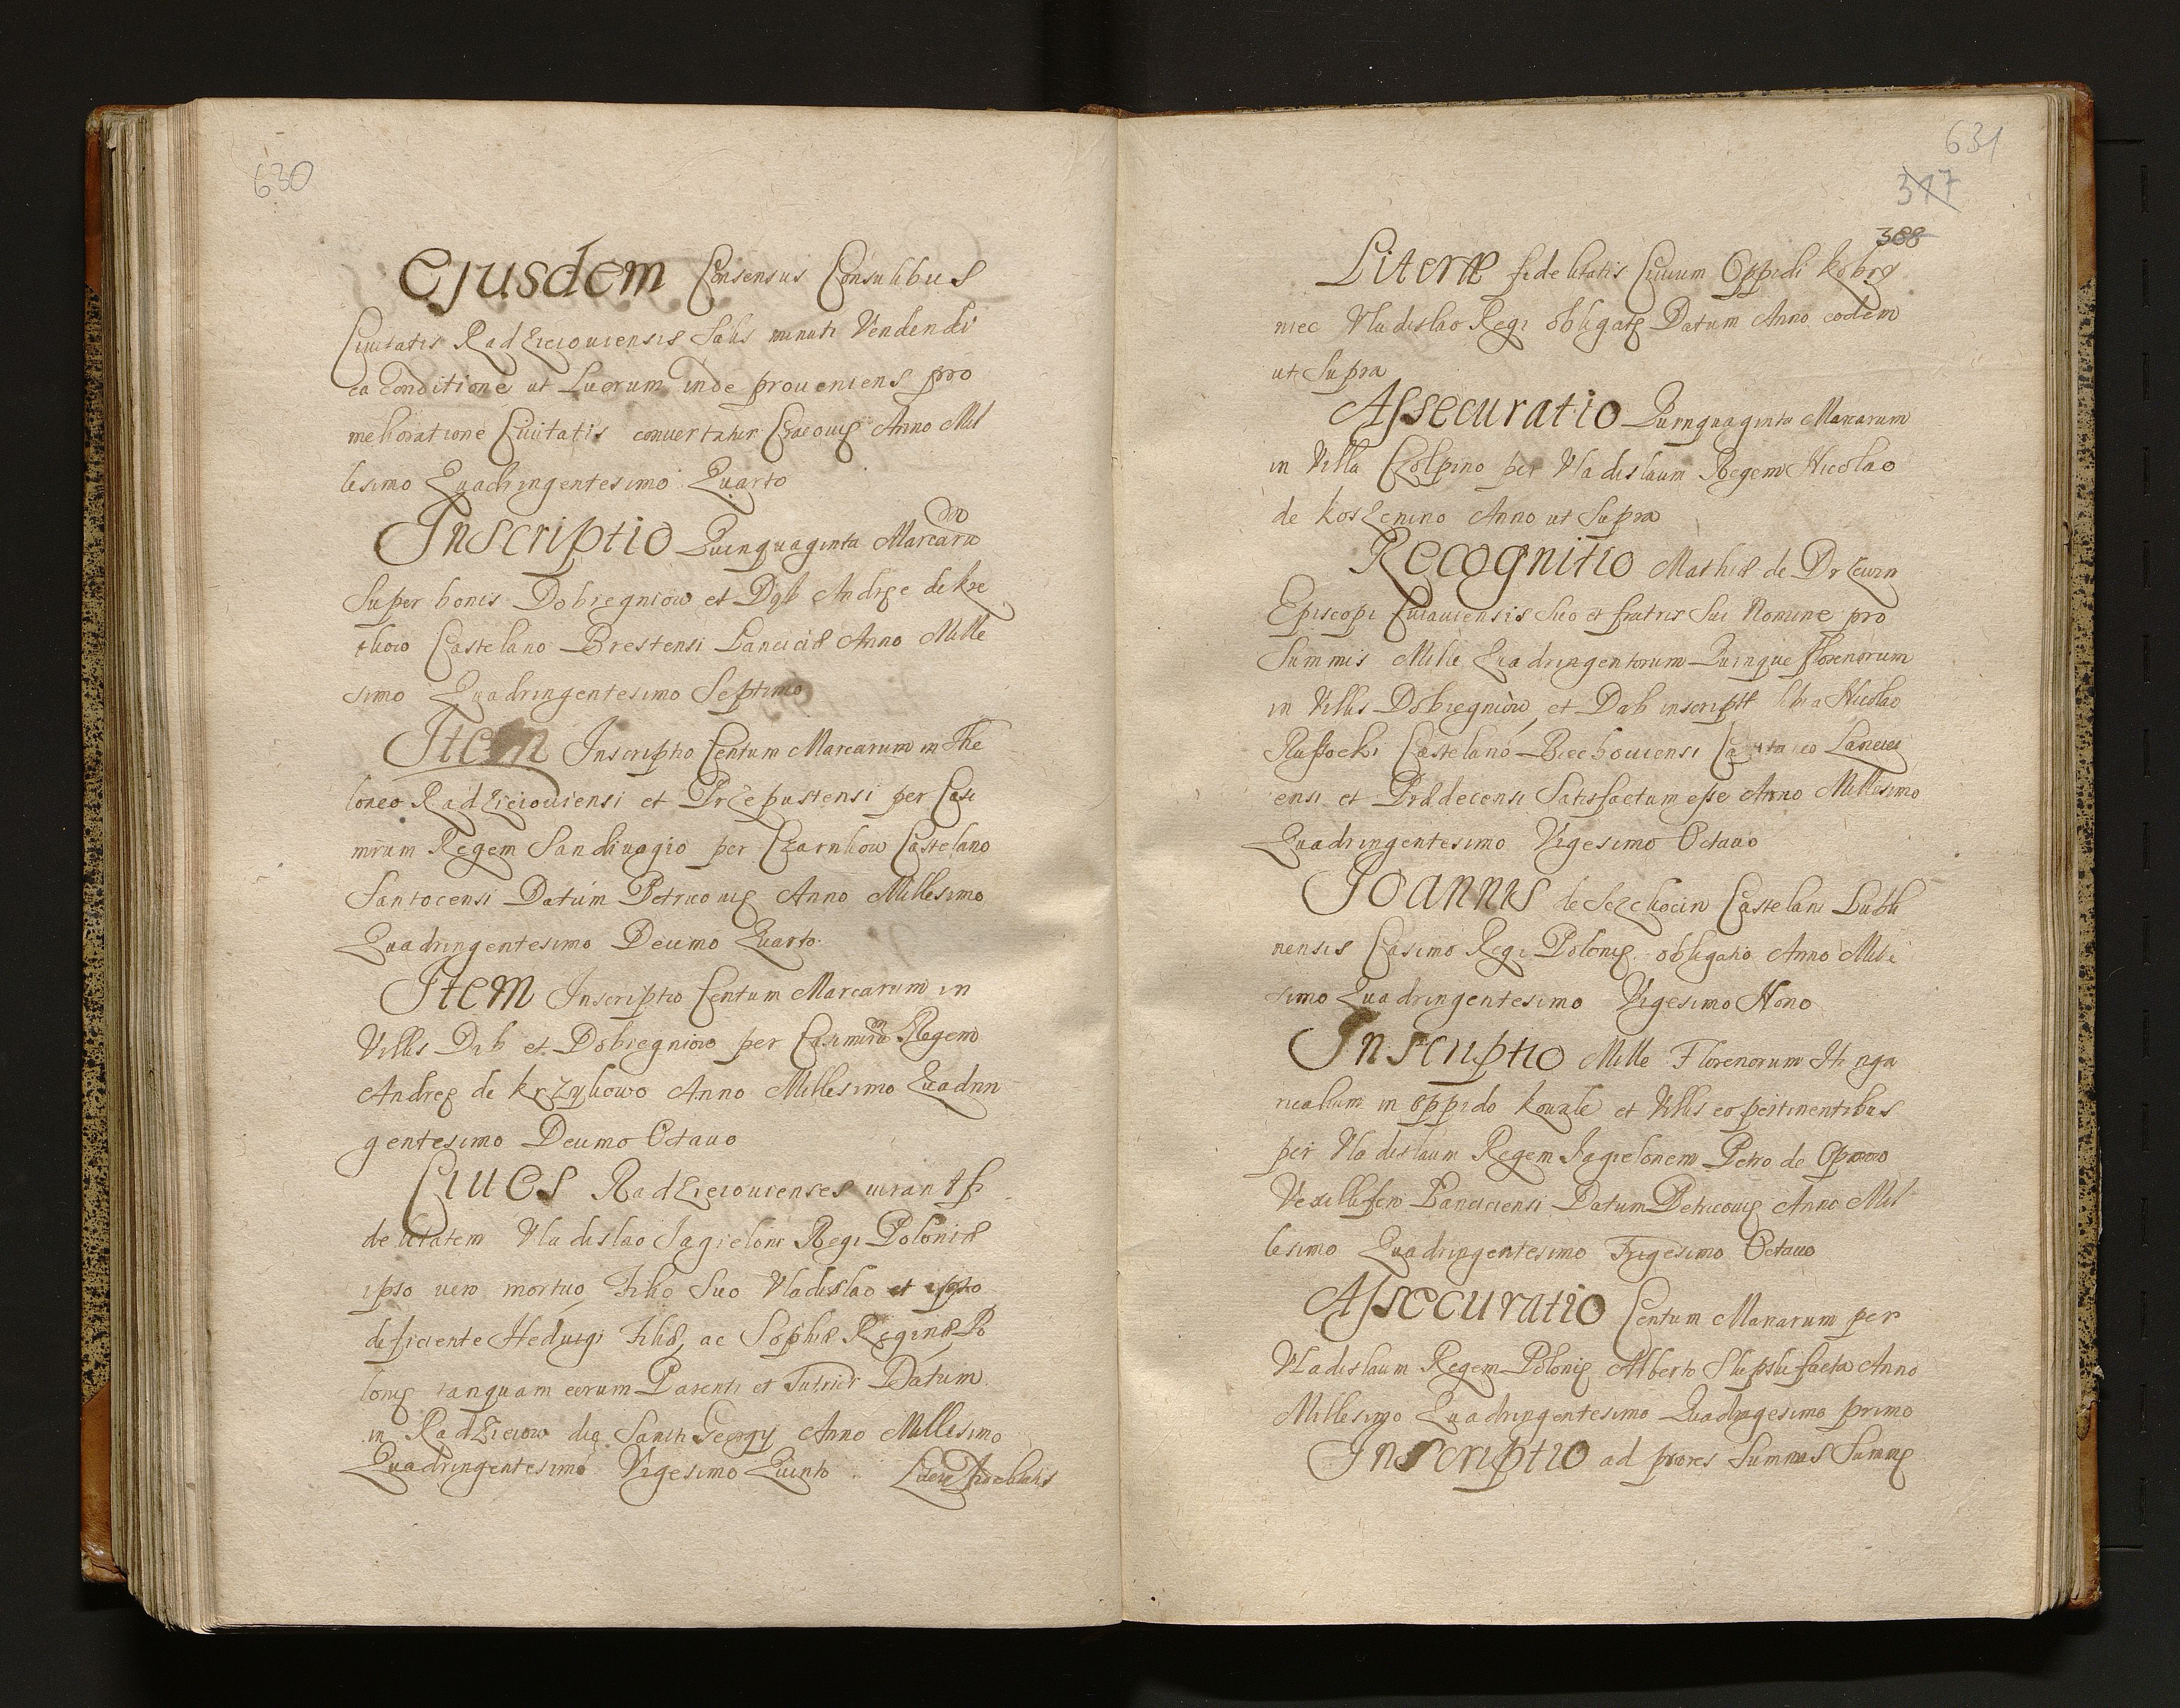 630
Ejusdem Consensus Consulibus
Civitatis Radzieiouiensis Salis minuti Vendendi
ea Conditione ut Lucrum inde proueniens pro
melioratione Ciuitatis conuertatur Cracouię Anno Mil
lesimo Quadringentesimo Quarto
Inscriptio Quinquaginta Marcaru
Super bonis Dobiegniow et Dąb Andreę de Krę
Castelano Brestensi Lanciciæ Anno Mille
simo Quadringentesimo Septimo
Item Inscriptio Centum Marcarum in The
loneo Radzieiouiensi et Przepustensi per Casi
mirum Regem Sandiuogio per Czarnkow Castelano
Santocensi Datum Petricouię Anno Millesimo
Quadringentesimo Decimo Quarto
Item Inscriptio Centum Marcarum in
Villis Dąb et Dobiegniow per Casimirum Regem
Andreę de Krzykowo Anno Millesimo Quadrin
gentesimo Decimo Octauo
Ciues Radzieiouienses iurant fi
delitatem Vladislao Jagieloni Regi Poloniæ
ipso vero mortuo Filio Suo Vladislao et ipso
deficiente Heduigi Filiæ ac Sophiæ Reginæ Po
lonię tanquam eorum Parenti et Tutrici Datum
in Radzieiow die Sancti Georgy Anno Millesimo
Quadringentesimo Vigesimo Quinto
Literæ fidelitatis
631
317
388
Literæ fidelitatis Ciuium Oppidi Kobrę
niec Vladislao Regi obligatę Datum Anno eodem
ut Supra
Assecuratio Quinquaginta Marcarum
in Villa Czolpino per Vladislaum Regem Nicolao
de Koszenino Anno ut Supra
Recognitio Mathiæ de Drzewin
Episcopi Cuiauiensis Suo et fratris Sui Nomine pro
Summis Mille Quadringentorum Quinque florenorum
in Villis Dobiegniow et Dąb inscriptis sibi a Nicolao
Russocki Castelano Biechouiensi Capitaneo Lancici
ensi et Prædecensi Satisfactum esse Anno Millesimo
Quadringentesimo Vigesimo Octauo
Joannis de Sczekocin Castelani Lubli
nensis Casimo Regi Polonię obligatio Anno Mille
simo Quadringentesimo Vigesimo Nono
Inscriptio Mille Florenorum Hunga
ricalium in Oppido Kowale et Villis eo pertinentibus
per Vladislaum Regem Jagielonem Petro de Oporow
Vexillifero Lanciciensi Datum Petricouię Anno Mil
lesimo Quadringentesimo Trigesimo Octauo
Assecuratio Centum Marcarum per
Vladislaum Regem Polonię Alberto Slupski facta Anno
Millesimo Quadringentesimo Quadragesimo primo
Inscriptio ad priores Summas Summę